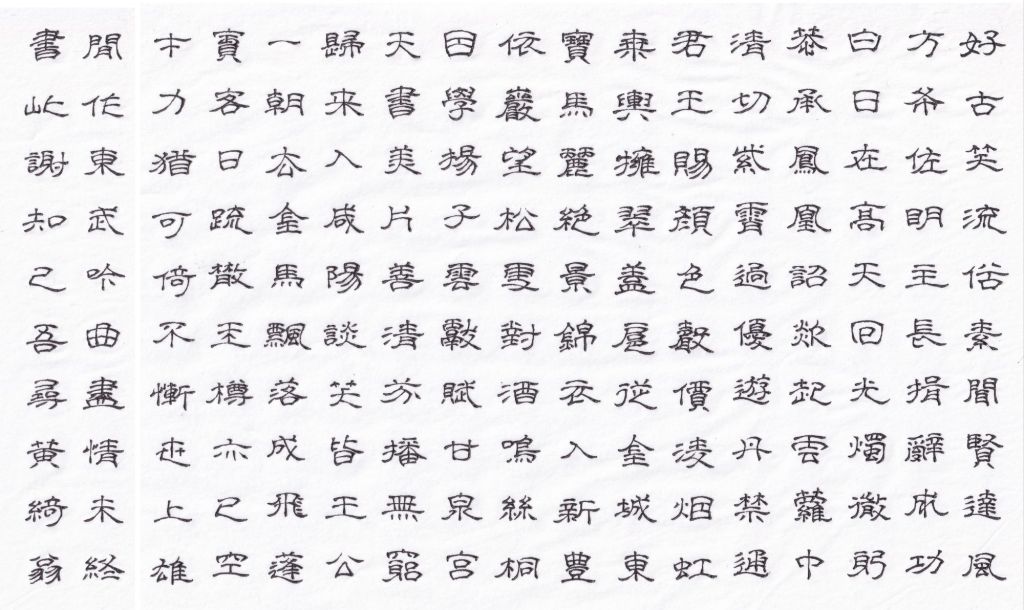 好古笑流俗素聞賢達風
方希佐明主長揖辭成功
白日在高天回光燭微躬
恭承鳳凰詔欻起雲蘿中
清切紫霄逈優遊丹禁通
君王賜顏色聲價淩烟虹
乘輿擁翠蓋扈從金城東
寶馬麗絕景錦衣入新豐
依巖望松雪對酒鳴絲桐
因學揚子雲獻賦甘泉宮
天書美片善清芬播無窮
歸來入咸陽談笑皆王公
一朝去金馬飄落成飛蓬
賓客日疏散玉樽亦已空
才力猶可倚不慚世上雄
閒作東武吟曲盡情未終
書此謝知己吾尋黃綺翁